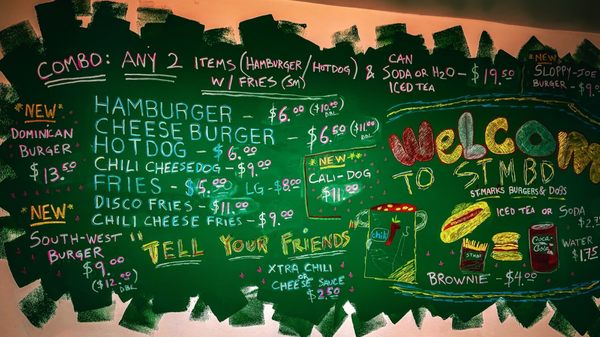 COMBO: ANY 2 ITEMS (HAMBURGER/HOTDOG) & CAN SODA OR H2O - $19.50
W/ FRIES (SM) ICED TEA
*NEW*
DOMINICAN
BURGER
$13.50
*NEW*
SOUTH-WEST
BURGER
$9.00
($12.00 DBL)
HAMBURGER - $6.00 ($10.00 DBL)
CHEESEBURGER - $6.50 ($11.00 DBL)
HOTDOG - $6.00
CHILI CHEESEDOG - $9.00
FRIES - $5.00 LG - $8.00
DISCO FRIES - $11.00
CHILI CHEESE FRIES - $9.00
*NEW*
CALI-DOG
$11.00
"TELL YOUR FRIENDS"
XTRA CHILI
OR
CHEESE SAUCE
$2.50
*NEW*
SLOPPY-JOE
BURGER - $9.0
WELCOM
TO STMBD
ST.MARKS BURGERS & DOGS
chili
STMBD
COCA-COLA
ICED TEA OR SODA
$2.7
WATER
$1.75
BROWNIE - $4.00